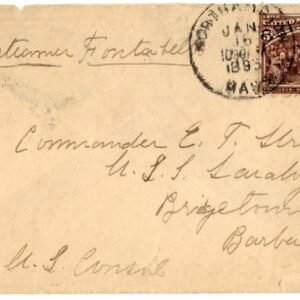 Steamer Fontabel
NORTHAMPT
JAN
1893
MAS
Commander E. T. Str
U. S. S. Sarato
Bridgetown
Barba
U. S. Consul